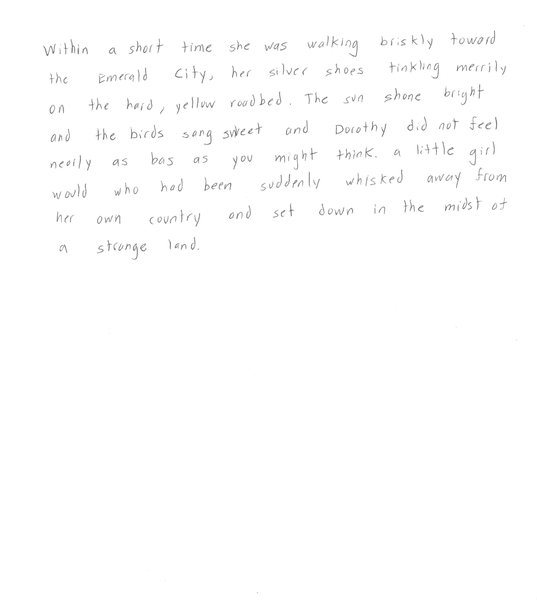 Within a short time she was walking briskly toward
the Emerald City, her silver shoes tinkling merrily
on the hard, yellow roadbed. The sun shone bright
and the birds sang sweet and Dorothy did not feel
nearly as bas as you might think. a little girl
would who had been suddenly whisked away from
her own country and set down in the midst of
a strange land.